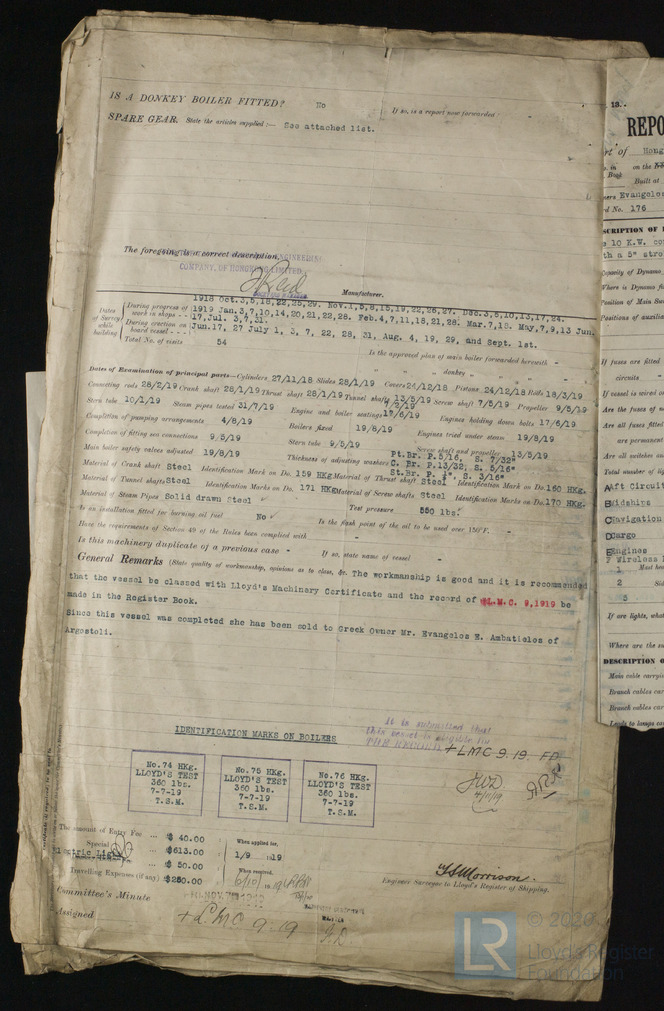 IS A DONKEY BOILER FITTED? No If so, is a report now forwarded
SPARE GEAR. State the articles supplied :— See attached list.
The foregoing is a correct description,
COMPANY, OF HONGKONG LIMITED
Manufacturer.
Dates of Survey while building
During progress of work in shops - -
1918 Oct.3,5,18,22,25,29. Nov.1,5,8,15,19,22,26,27. Dec.3,6,10,13,17,24.
1919 Jan.3,7,10,14,20,21,22,28. Feb.4,7,11,18,21,28. Mar.7,18. May,7,9,13 Jun.
17,Jul. 3,7,31.
During erection on board vessel - - -
Jun.17, 27 July 1, 3, 7, 22, 28, 31, Aug. 4, 19, 29, and Sept. 1st.
Total No. of visits 54
Is the approved plan of main boiler forwarded herewith -
" " " donkey " " " -
Dates of Examination of principal parts—Cylinders 27/11/18 Slides 28/1/19 Covers 24/12/18 Pistons 24/12/18 Rods 18/3/19
Connecting rods 28/2/19 Crank shaft 28/1/19 Thrust shaft 28/1/19 Tunnel shafts 13/5/19 Screw shaft 7/5/19 Propeller 9/5/19
Stern tube 10/1/19 Steam pipes tested 31/7/19 Engine and boiler seatings 17/6/19 Engines holding down bolts 17/6/19
Completion of pumping arrangements 4/8/19 Boilers fixed 19/8/19 Engines tried under steam 19/8/19
Completion of fitting sea connections 9/5/19 Stern tube 9/5/19 Screw shaft and propeller 13/5/19
Main boiler safety valves adjusted 19/8/19 Thickness of adjusting washers Pt.Br. P.5/16, S. 7/32"
C. Br. P.13/32, S. 5/16"
St.Br. P. 1", S. 3/16"
Material of Crank shaft Steel Identification Mark on Do. 159 HKg. Material of Thrust shaft Steel Identification Mark on Do. 160 HKg.
Material of Tunnel shafts Steel Identification Marks on Do. 171 HKg. Material of Screw shafts Steel Identification Marks on Do. 170 HKg.
Material of Steam Pipes Solid drawn Steel Test pressure 550 lbs.
Is an installation fitted for burning oil fuel No Is the flash point of the oil to be used over 150°F. -
Have the requirements of Section 49 of the Rules been complied with -
Is this machinery duplicate of a previous case - If so, state name of vessel -
General Remarks (State quality of workmanship, opinions as to class, &c. The workmanship is good and it is recommended
that the vessel be classed with Lloyd's Machinery Certificate and the record of L.M.C. 9,1919 be
made in the Register Book.
Since this vessel was completed she has been sold to Greek Owner Mr. Evangelos E. Ambatielos of
Argostoli.
It is submitted that
this vessel is eligible for
THE RECORD + LMC 9.19. FD
IDENTIFICATION MARKS ON BOILERS
No.74 HKg.
LLOYD'S TEST
360 lbs.
7-7-19
T.S.M.
No.75 HKg.
LLOYD'S TEST
360 lbs.
7-7-19
T.S.M.
No.76 HKg.
LLOYD'S TEST
360 lbs.
7-7-19
T.S.M.
The amount of Entry Fee ... $ 40.00 When applied for,
Special ... $613.00 1/9 1919
$ 50.00 When received,
Travelling Expenses (if any) $250.00
Engineer Surveyor to Lloyd's Register of Shipping.
Committee's Minute
Assigned + LMC 9.19
REPO
Hong
on the
Built at
Evangelos
No. 176
10 K.W.
th a 5" stro
Capacity of Dynamo
Where is Dynamo fi
Position of Main Su
Positions of auxilia
If fuses are fitted
circuits
If vessel is wired o
Are the fuses of
Are all fuses fitted
are permanent
Are all switches an
Total number of lig
Aft Circuit
Midships
Navigation
Cargo
Engines
Wireless
1 Mast hea
2 Sid
5
If are lights, what
Where are the sw
DESCRIPTION O
Main cable carryin
Branch cables carr
Branch cables carr
Leads to lamps car
LR
© 2020
Lloyd's Register
Foundation